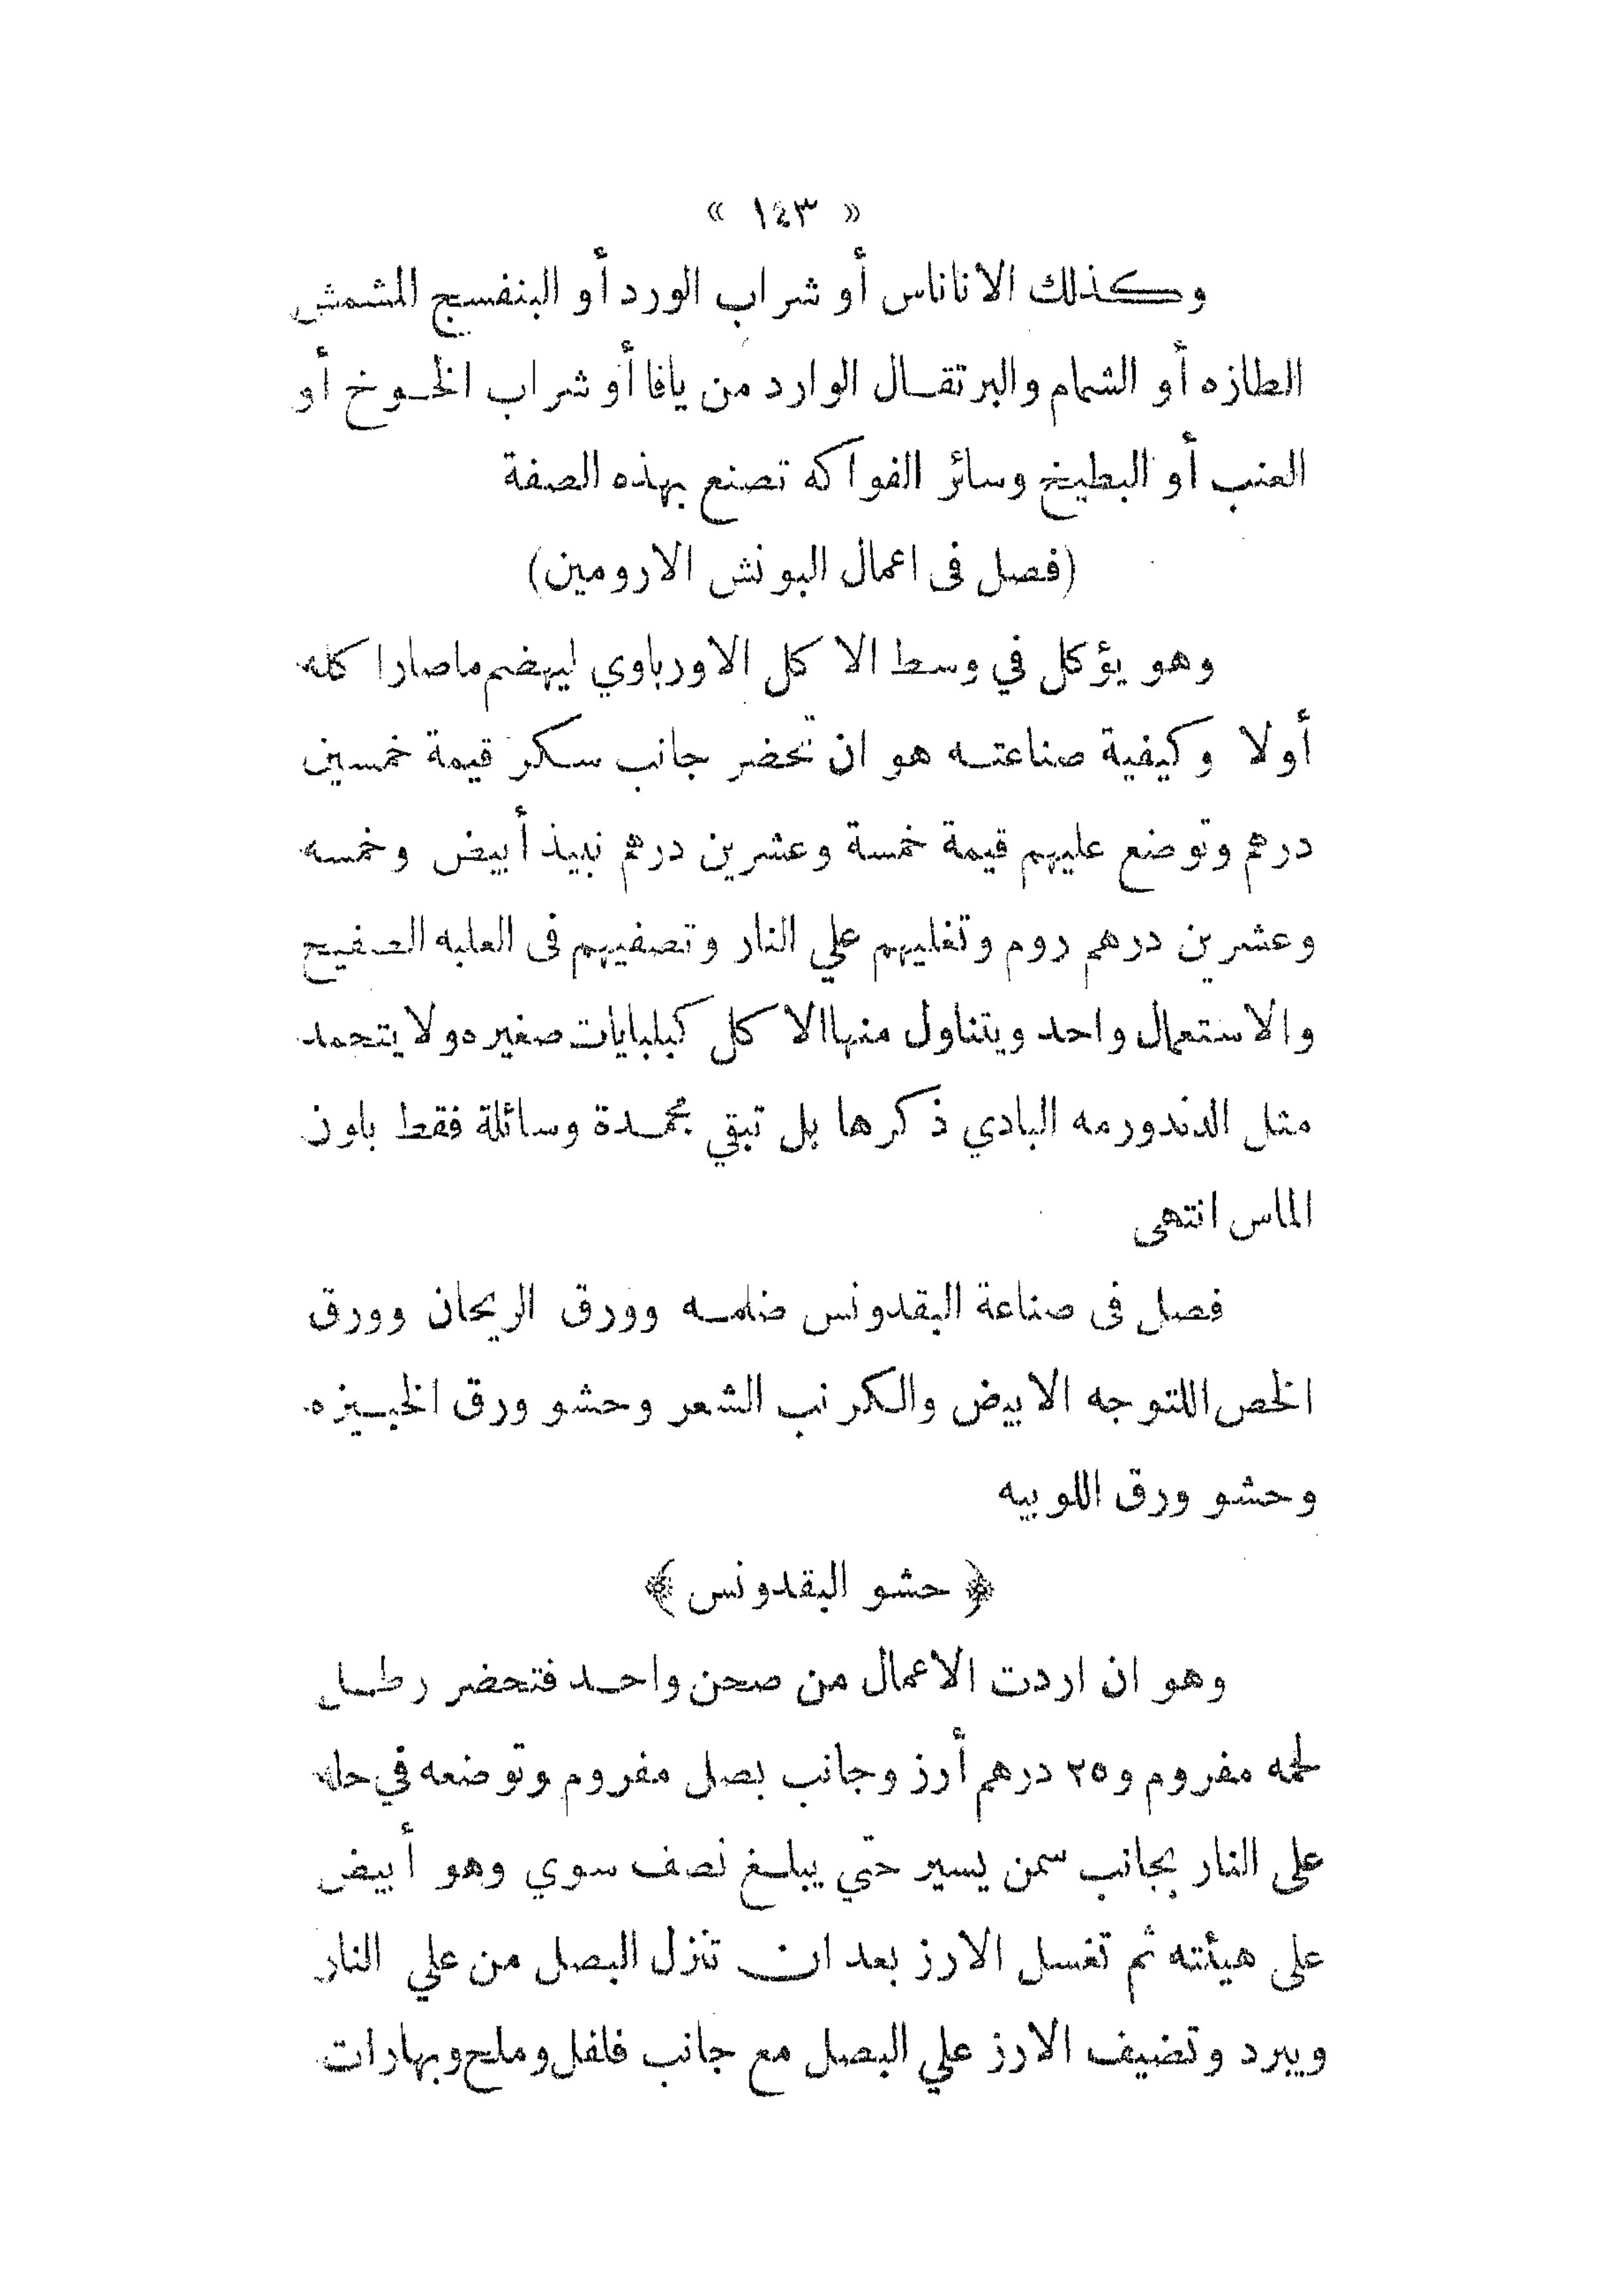 « ١٤٣ »
وكذلك الاناناس أو شراب الورد أو البنفسج المشمش
الطازه أو الشمام والبرتقال الوارد من يافا أو شراب الخوخ أو
العنب أو البطيخ وسائر الفواكه تصنع بهذه الصفة
(فصل فى اعمال البونش الارومين)
وهو يؤكل في وسط الاكل الاورباوي ليهضم ماصار اكله
أولا وكيفية صناعته هو ان تحضر جانب سكر قيمة خمسين
درهم وتوضع عليهم قيمة خمسة وعشرين درهم نبيذ أبيض وخمسه
وعشرين درهم روم وتغليهم علي النار وتصفيهم فى العلبه الصفيح
والاستعمال واحد ويتناول منها الاكل كبلبايات صغيره ولا يتجمد
مثل الدندورمه البادي ذكرها بل تبقي مجمدة وسائلة فقط باوز
الماس انتهى
فصل فى صناعة البقدونس ضلمه وورق الريحان وورق
الخص اللتوجه الابيض والكرنب الشعر وحشو ورق الخبيزه
وحشو ورق اللوبيه
﴿ حشو البقدونس ﴾
وهو ان اردت الاعمال من صحن واحد فتحضر رطل
لحمه مفروم و٢٥ درهم أرز وجانب بصل مفروم وتوضعه في حله
على النار بجانب سمن يسير حتي يبلغ نصف سوي وهو أبيض
على هيئته ثم تغسل الارز بعد ان تنزل البصل من علي النار
ويبرد وتضيف الارز علي البصل مع جانب فلفل وملح وبهارات